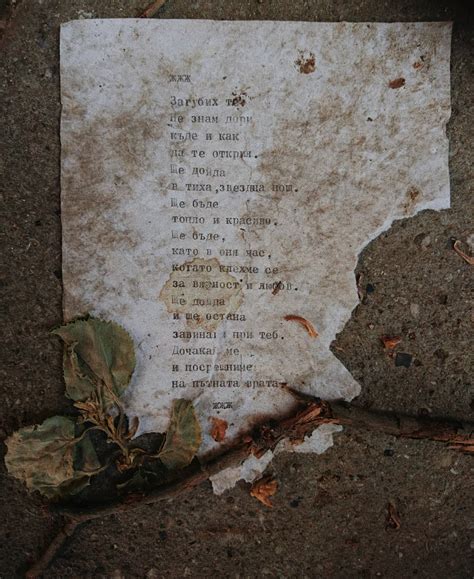 жжж
Загубих те.
Не знам дори
къде и как
да те открия.
Ще дойда
в тиха, звездна нощ.
Ще бъде
топло и красиво.
Ще бъде,
като в оня час,
когато клехме се
за вярност и любов.
Ще дойда
и ще остана
завинаги при теб.
Дочакай ме
и посрещни ме
на пътната врата.
жжж